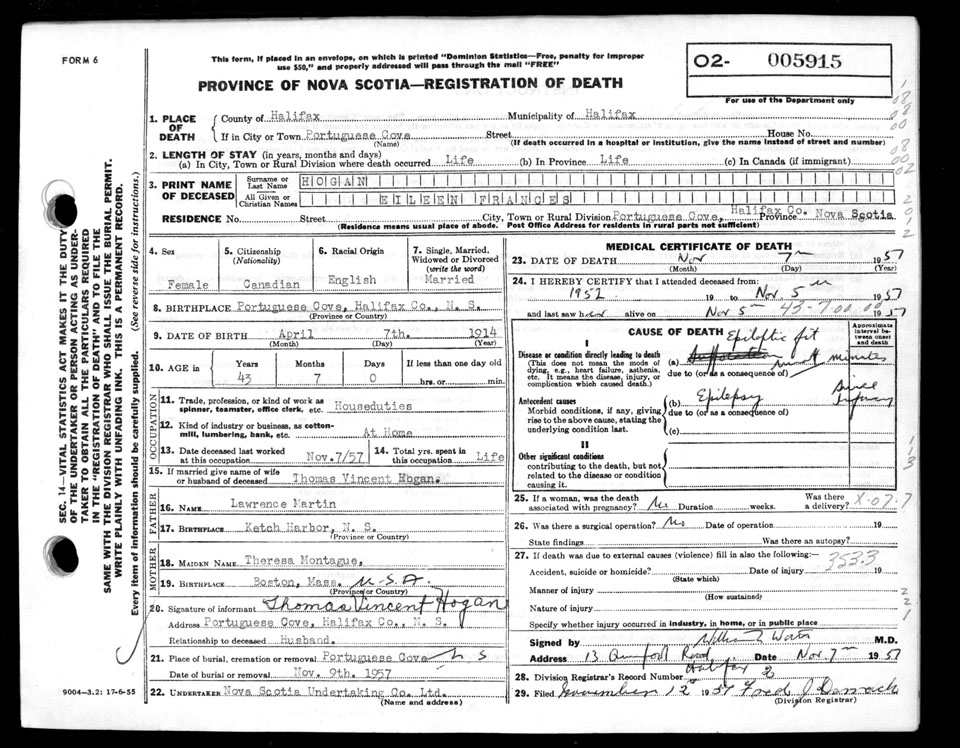 FORM 6
This form, if placed in an envelope, on which is printed "Dominion Statistics—Free, penalty for improper
use $50," and properly addressed will pass through the mail "FREE"
PROVINCE OF NOVA SCOTIA—REGISTRATION OF DEATH
O2- 005915
For use of the Department only
SEC. 14—VITAL STATISTICS ACT MAKES IT THE DUTY
OF THE UNDERTAKER OR PERSON ACTING AS UNDER-
TAKER TO OBTAIN ALL THE PARTICULARS REQUIRED
IN THE "REGISTRATION OF DEATH" AND TO FILE THE
SAME WITH THE DIVISION REGISTRAR WHO SHALL ISSUE THE BURIAL PERMIT.
WRITE PLAINLY WITH UNFADING INK. THIS IS A PERMANENT RECORD.
Every item of information should be carefully supplied. (See reverse side for instructions.)
1. PLACE OF DEATH
County of Halifax Municipality of Halifax
If in City or Town Portuguese Cove Street House No.
(Name) (If death occurred in a hospital or institution, give the name instead of street and number)
2. LENGTH OF STAY (in years, months and days)
(a) In City, Town or Rural Division where death occurred Life (b) In Province Life (c) In Canada (if immigrant)
3. PRINT NAME OF DECEASED
Surname or Last Name HOGAN
All Given or Christian Names EILEEN FRANCES
RESIDENCE No. Street City, Town or Rural Division Portuguese Cove, Halifax Co. Province Nova Scotia
(Residence means usual place of abode. Post Office Address for residents in rural parts not sufficient)
4. Sex Female
5. Citizenship (Nationality) Canadian
6. Racial Origin English
7. Single, Married, Widowed or Divorced (write the word) Married
8. BIRTHPLACE Portuguese Cove, Halifax Co., N. S.
(Province or Country)
9. DATE OF BIRTH April 7th. 1914
(Month) (Day) (Year)
10. AGE in Years Months Days If less than one day old
43 7 0 hrs. or min.
OCCUPATION
11. Trade, profession, or kind of work as
spinner, teamster, office clerk, etc. Houseduties
12. Kind of industry or business, as cotton-
mill, lumbering, bank, etc. At Home
13. Date deceased last worked
at this occupation Nov.7/57
14. Total yrs. spent in
this occupation Life
15. If married give name of wife
or husband of deceased Thomas Vincent Hogan.
FATHER
16. NAME Lawrence Martin
17. BIRTHPLACE Ketch Harbor, N. S.
(Province or Country)
MOTHER
18. MAIDEN NAME Theresa Montague,
19. BIRTHPLACE Boston, Mass. U.S.A.
(Province or Country)
20. Signature of informant Thomas Vincent Hogan
Address Portuguese Cove, Halifax Co., N. S.
Relationship to deceased Husband.
21. Place of burial, cremation or removal Portuguese Cove N S
Date of burial or removal Nov. 9th. 1957
22. UNDERTAKER Nova Scotia Undertaking Co. Ltd.
(Name and address)
9004—3.2: 17-6-55
MEDICAL CERTIFICATE OF DEATH
23. DATE OF DEATH Nov 7th 1957
(Month) (Day) (Year)
24. I HEREBY CERTIFY that I attended deceased from:
1952 19 to Nov 5 1957
and last saw her alive on Nov 5 43-700 00 1957
CAUSE OF DEATH
Approximate interval between onset and death
I
Disease or condition directly leading to death
(This does not mean the mode of
dying, e.g., heart failure, asthenia,
etc. It means the disease, injury, or
complication which caused death.)
Epileptic fit
(a) minutes
due to (or as a consequence of)
Antecedent causes
Morbid conditions, if any, giving
rise to the above cause, stating the
underlying condition last.
(b) Epilepsy since
due to (or as a consequence of)
(c)
II
Other significant conditions
contributing to the death, but not
related to the disease or condition
causing it.
25. If a woman, was the death
associated with pregnancy? No Duration weeks. Was there a delivery? X-07-7
26. Was there a surgical operation? No Date of operation 19
State findings Was there an autopsy?
27. If death was due to external causes (violence) fill in also the following:—
353.3
Accident, suicide or homicide? Date of injury 19
(State which)
Manner of injury
(How sustained)
Nature of injury
Specify whether injury occurred in industry, in home, or in public place
Signed by William M.D.
Address 13 Road Halifax Date Nov 7th 1957
28. Division Registrar's Record Number
29. Filed November 12 1957 Fred J
(Division Registrar)